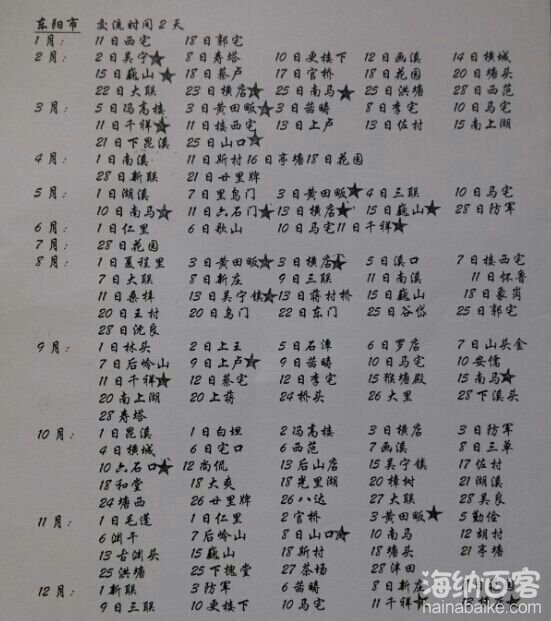 东阳市 交流时间2天
1月： 11日西宅 18日郭宅
2月： 2日吴宁★ 8日寿塔 10日更楼下 12日画溪 14日横城
15日巍山★ 18日蔡卢 17日官桥 18日花园 20日塘头
22日大联 23日横店★ 25日南马★ 25日洪塘 28日西范
3月： 5日冯高楼 3日黄田畈★ 3日茜畴 8日李宅 10日马宅
11日千祥★ 11日楼西宅 13日上卢 13日佐村 15南上湖
21日下昆溪 25日山口★
4月： 1日南溪 11日斯村 16日亭塘 18日花园
28日新联 21日廿里牌
5月： 1日湖溪 7日里乌门 3日黄田畈★ 4日三联 10日马宅
10日南马★ 11日六石门★ 13日横店★ 15日巍山★ 28日防军
6月： 1日仁里 6日歌山 10日马宅 11日千祥★
7月： 28日花园
8月： 1日夏程里 3日黄田畈★ 3日横店★ 5日溪口 7日楼西宅
7日大联 8日新庄 9日三联 11日南溪 11日怀鲁
11日桑梓 13日吴宁镇★ 13日蒋村桥 15日巍山 18日象岗
20日王村 20日乌门 22日东门 25日谷岱 25日郭宅
28日沈良
9月： 1日林头 2日上王 5日石潭 6日罗店 7日山头金
7日后岭山 9日上卢★ 9日茜畴 10日马宅 10安儒
11日千祥★ 12日蔡宅 12日李宅 15猴塘殿 15南马★
20南上湖 20上蒋 24桥头 26大里 28下溪头
28寿塔
10月： 1日昆溪 1日白坦 2冯高楼 3日横店 3日防军
4日横城 6日宅口 6西范 7画溪 8日三单
10六石口★ 12尚侃 13后山店 15吴宁镇 17佐村
18和堂 18大爽 18光里湖 20樟树 21湖溪
24塘西 26廿里牌 26八达 27大联 28吴良
11月： 1日毛莲 1日仁里 2官桥 3黄田畈★ 5勤俭
6渊干 7后岭山 8日山口★ 10南马 12胡村
13古渊头 15巍山 18斯村 18塘头 21亭塘
25洪塘 25下槐堂 27茶场 28泮田
12月： 1新联 3防军 6茜畴 8日新庄
9日三联 10更楼下 10马宅 11千祥★
海纳百客
hainabaike.com